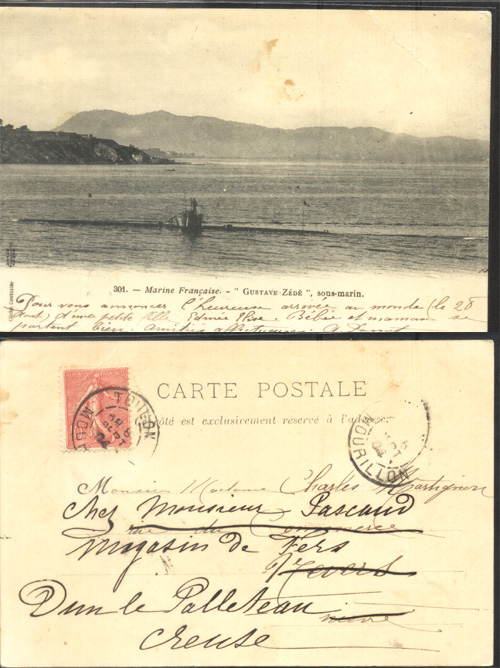 301. — Marine Française. - " GUSTAVE-ZÉDÉ ", sous-marin.
Pour vous annoncer l'heureuse arrivée au monde (le 28
août) d'une petite fille Edmée Elise. Bébé et maman se
portent bien. Amitiés affectueuses.
CARTE POSTALE
Ce côté est exclusivement réservé à l'adresse.
TOULON
MOURILLON
Monsieur Madame Charles Martignon
Chez Monsieur Pascaud
rue du Commerce
Magasin de Fers
Nevers
Dun le Palleteau
Creuse